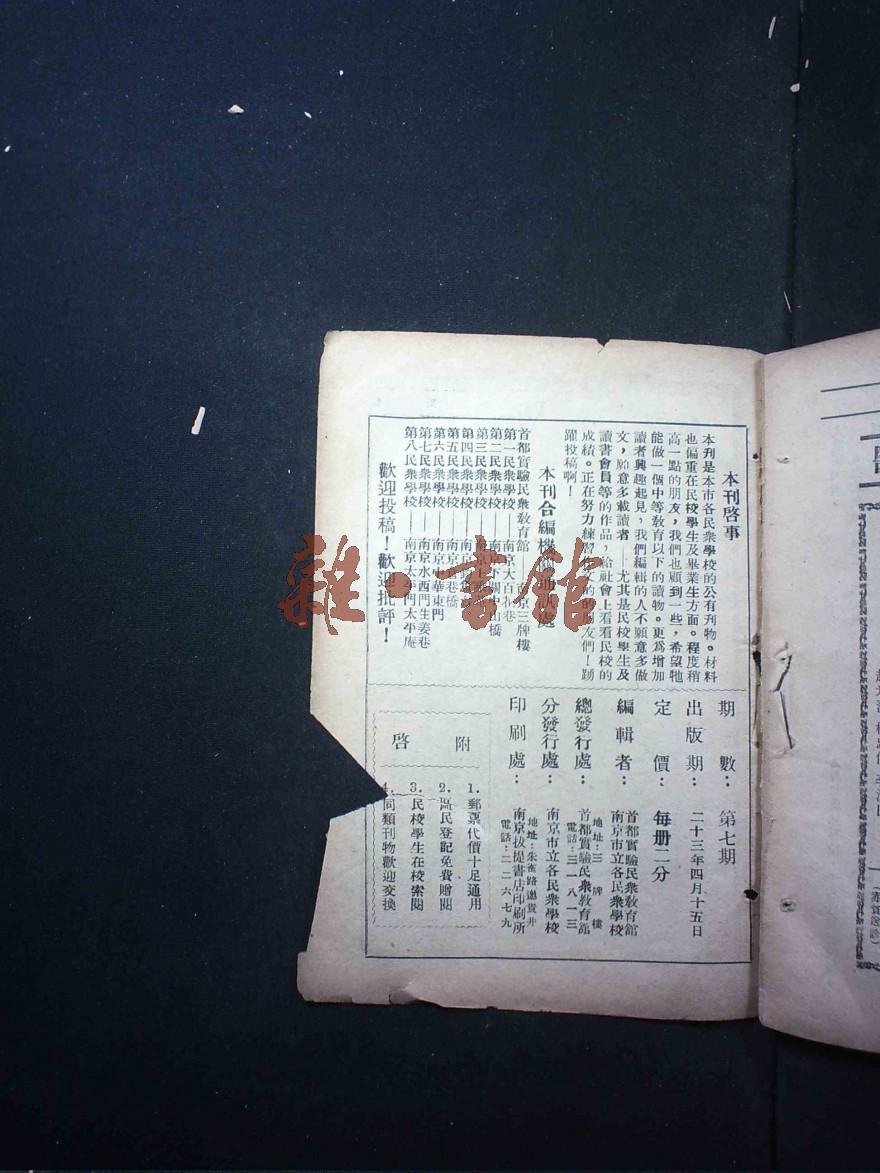 本刊啓事
本刋是本市各民衆學校的公有刋物。材料
也偏重在民校學生及畢業生方面。程度稍
高一點的朋友，我們也顧到一些，希望牠
能做一個中等教育以下的讀物。更爲增加
讀者興趣起見，我們編輯的人不願意多做
文，願意多載讀者——尤其是民校學生及
讀書會員等的作品，給社會上看看民校的
成績。正在努力練習作文的的朋友們！踴
躍投稿啊！
本刊合編機關通訊處
首都實驗民衆敎育館 南京三牌樓
第一民衆學校 南京大百花巷
第二民衆學校——南京下關中山橋
第三民衆學校——南京
第四民衆學校——南京
第五民衆學校——南京 巷橋
第六民衆學校——南京中華東門
第七民衆學校——南京水西門生姜巷
第八民衆學校——南京太平門太平庵
歡迎投稿！歡迎批評！
期數：第七期
出版期：二十三年四月十五日
定價：每册二分
編輯者：首都實驗民衆敎育館
南京市立各民衆學校
總發行處：首都實驗民衆敎育館
地址：三牌樓
電話：三一八一三
分發行處：南京市立各民衆學校
印刷處：南京拔提書店印刷所
地址：朱雀路邀貴井
電話：二二六七九
附啓
1.郵票代價十足通用
2.市民登記免費贈閱
3.民校學生在校索閱
4.同類刊物歡迎交換
雜·書館